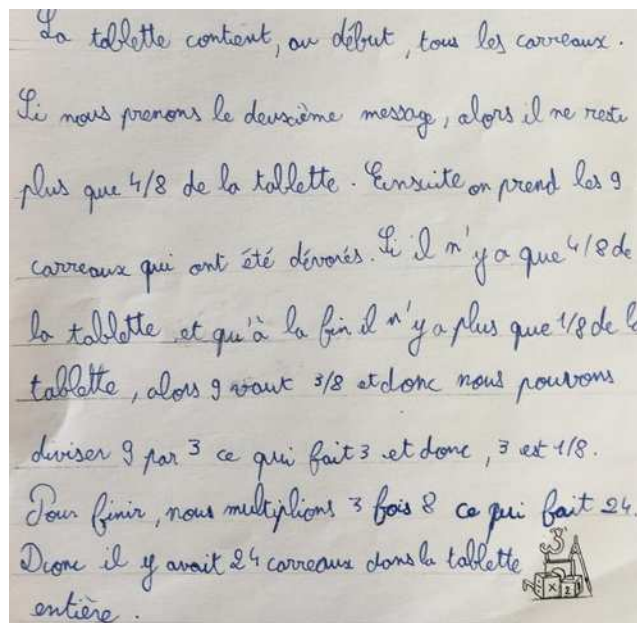 La tablette contient, au début, tous les carreaux.
Si nous prenons le deuxième message, alors il ne reste
plus que 4/8 de la tablette. Ensuite on prend les 9
carreaux qui ont été dévorés. Si il n'y a que 4/8 de
la tablette et qu'à la fin il n'y a plus que 1/8 de la
tablette, alors 9 vaut 3/8 et donc nous pouvons
diviser 9 par 3 ce qui fait 3 et donc, 3 est 1/8.
Pour finir, nous multiplions 3 fois 8 ce qui fait 24.
Donc il y avait 24 carreaux dans la tablette
entière.